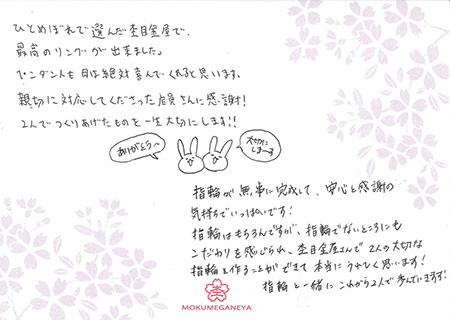 ひとめぼれで選んだ杢目金屋で、
最高のリングが出来ました。
ペンダントも 母は絶対喜んでくれると思います。
親切に対応してくださった店員さんに感謝!
2人でつくりあげたものを一生大切にします!!
ありがとう〜
大切に
しま〜す
指輪が無事に完成して、安心と感謝の
気持ちでいっぱいです!
指輪はもちろんですが、指輪でないところにも
こだわりを感じられ、杢目金屋さんで2人の大切な
指輪を作ることができて本当にうれしく思います!
指輪と一緒にこれから2人で歩んでいきます!
MOKUMEGANEYA